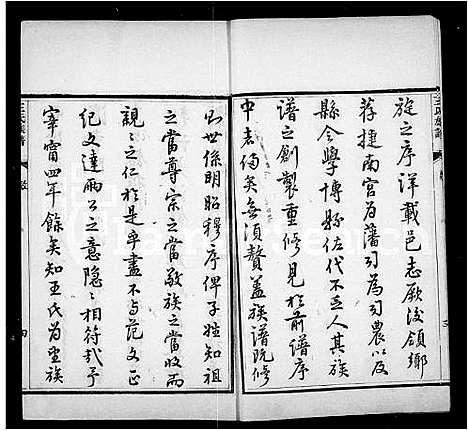 旋之序詳載邑志厥後領鄉
荐捷南宮为藩司为司農以及
縣令學博縣佐代不乏人其族
譜之創製重修見於前譜序
中者備矣無須贅盖族譜既修
則世係明昭穆序俾子姓知祖
之當尊宗之當敬族之當收而
親親之仁於是乎盡不与范文正
纪文達兩公之意隐隐相符哉予
宰甯四年餘矣知王氏为望族
王氏族譜
三
四